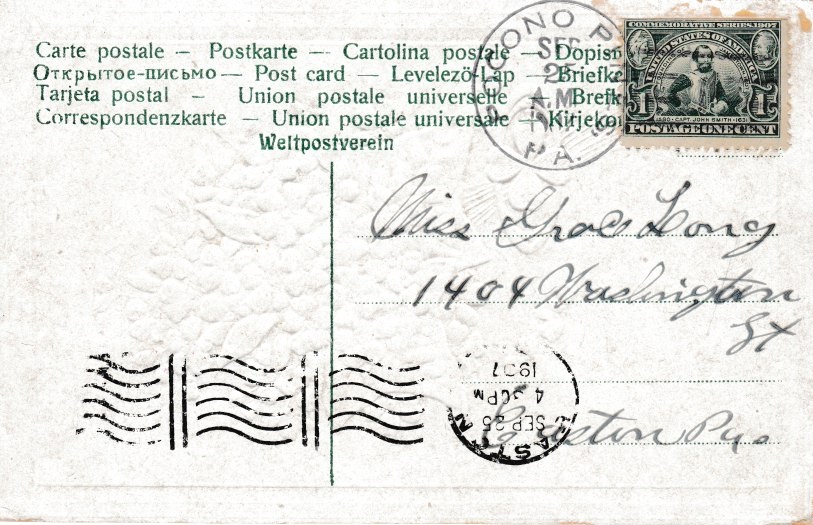 Carte postale — Postkarte — Cartolina postale — Dopisn
Открытое-письмо — Post card — Levelező-Lap — Briefk
Tarjeta postal — Union postale universelle — Brefk
Correspondenzkarte — Union postale universale — Kitjeko
Weltpostverein
POCONO P
SEP
25
A.M.
PA.
COMMEMORATIVE SERIES 1907
UNITED STATES OF AMERICA
1 1
1580 · CAPT. JOHN SMITH · 1631
POSTAGE ONE CENT
Miss Grace Long
1404 Washington
St
Easton Pa
EASTON
SEP 25
4 30PM
1907